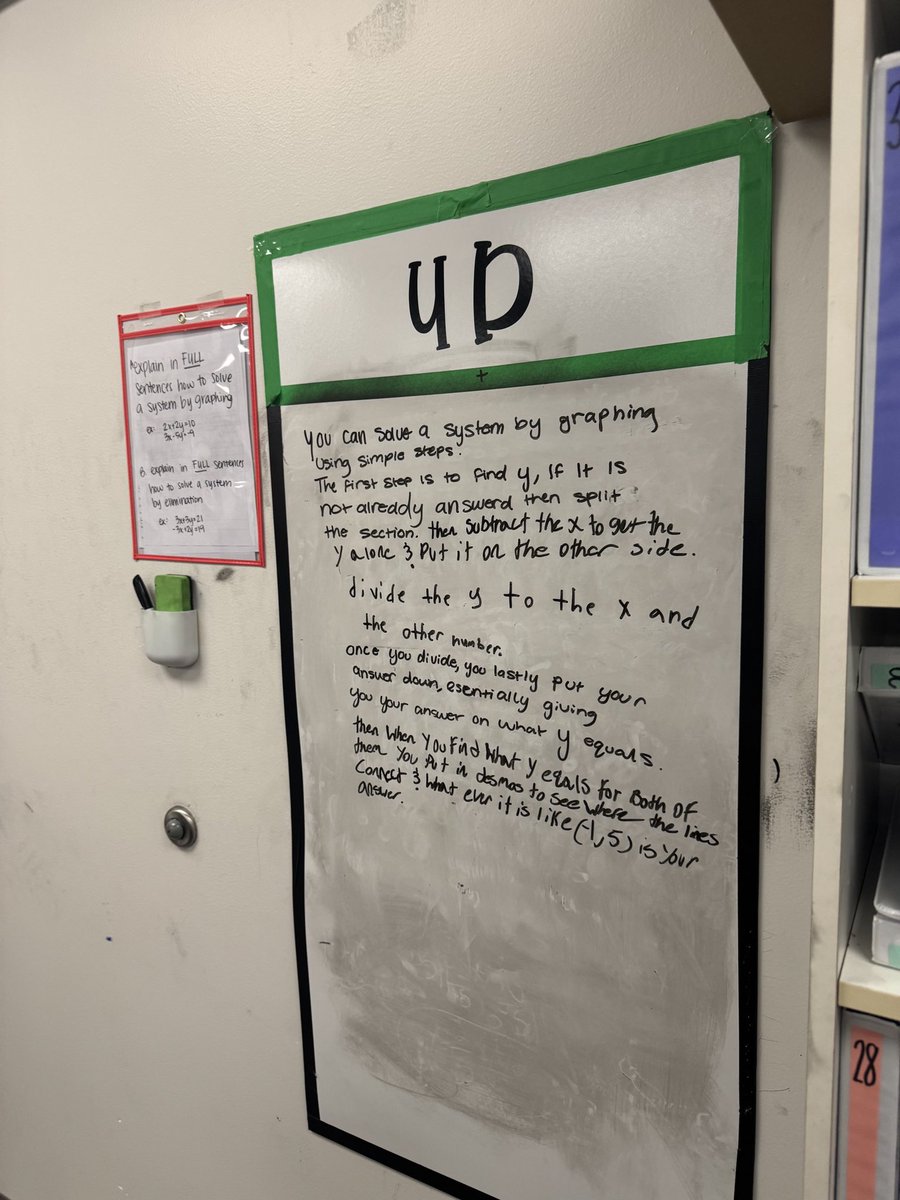 yD
A. explain in FULL
Sentences how to solve
a system by graphing
ex: 2x+2y=10
3x-5y=-9
B. explain in FULL sentences
how to solve a system
by elimination
ex: 3x+3y=21
-3x+2y=19
You can solve a system by graphing
using simple steps.
The first step is to find y, if it is
not already answerd then split
the section. then subtract the x to get the
y alone & Put it on the other side.
divide the y to the x and
the other number.
once you divide, you lastly put your
answer down, esentially giving
you your answer on what y equals.
then when you find what y eqals for Both of
them you Put in desmos to see where the lines
connect & what ever it is like (-1,5) is your
answer.
28